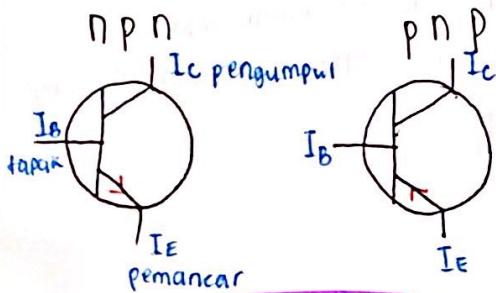 n p n
Ic pengumpul
IB
tapak
IE
pemancar
p n p
Ic
IB
IE